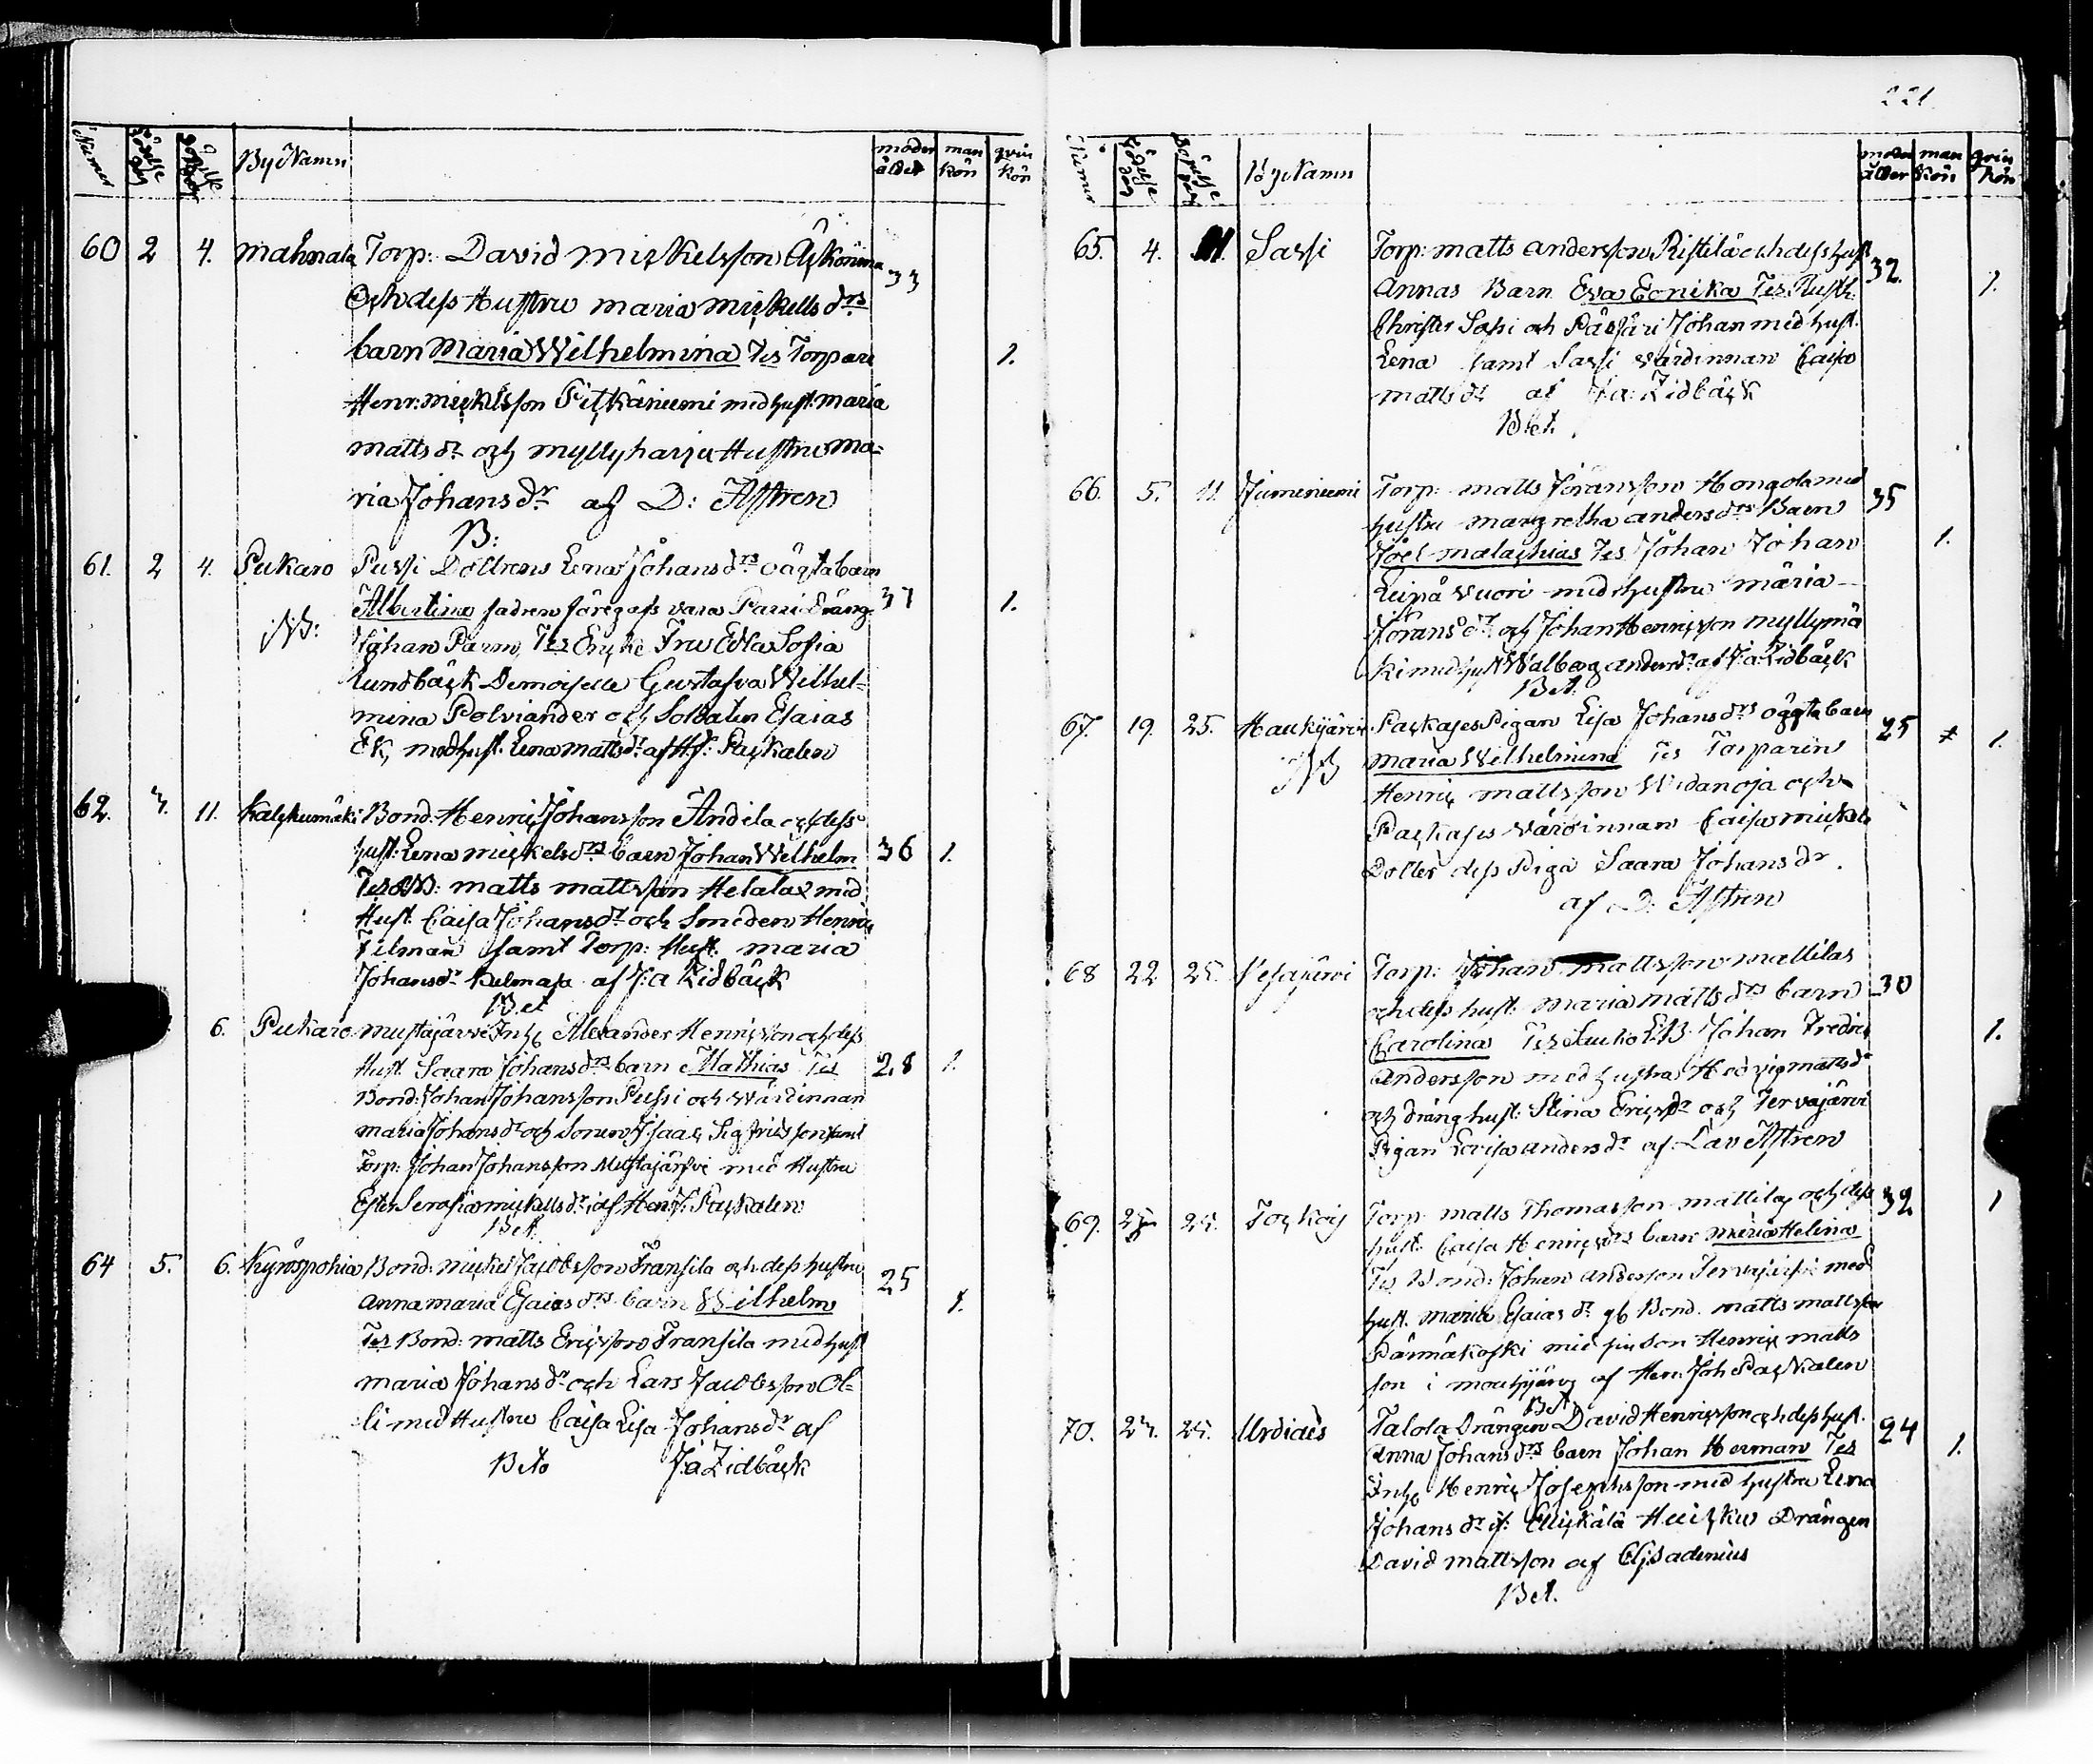 Numer födelse dag döpelse dag By Namn moder ålder man kön qvin kön
60 2 4. mahnala Torp: David Mickelsson Äijkönima 33
Och dess Hustru maria mickells drs
barn Maria Wilhelmina Tes Torpare 1.
Henr: mickelsson Pitkäniemi med hust. maria
matts dr och myllyharju Hustru ma-
ria Johans dr af D: Astren
B:
61. 2 4. Pukaro Pussi Dottrens Lena Johans drs oägta barn
Albertina fadren föregifs vara Parri dräng 37 1.
NB: Johan Parm, Tes Encke Fru Edla Sofia
Lundbäck Demoiselle Gustafva Wilhel-
mina Polviander och Soldaten Esaias
Ek, med hust. Lena matts dr af H J: Packalen
62. 3. 11. Kalckumäki Bond. Henric Johansson Andila och dess
hust: Lena mickels drs barn Johan Wilhelm 36 1.
Tes B: matts mattsson Helala med
Hust. Caisa Johans dr och Smeden Henric
Tilman samt Torp: Hust. maria
Johans dr af J: a Zidbäck
Bet
6. Pukaro mustajärvi Inh: Alexander Henricsson och dess
Hust. Saara Johans drs barn Mathias Tes 28 1.
Bond: Johan Johansson Pussi och värdinnan
maria Johans dr och Sonen Isaac Sigfridsson samt
Torp: Johan Johansson Mustajärfvi med Hustru
Ester Serafia mickells dr af Hen: J: Packalen
Bet.
64 5. 6. Kyröspohia Bond: mickel Jacobsson Fransila och dess hustru
anna maria Esaias drs barn Wilhelm 25 1.
Tes Bond: matts Ericsson Fransila med hust
maria Johans dr och Lars Jacobsson Ol-
li med Hustru Caisa Lisa Johans dr af
Bet J: a Zidbäck
221.
Numer födelse dag döpelse dag By Namn moder ålder man kön qvin kön
65. 4. 11. Sassi Torp: matts andersson Ristilä och dess hust 32.
Annas Barn Eva Eonika Tes Rusth. 1.
Christer Sassi och Johan med hust.
Lena samt Sassi värdinnan Caisa
matts dr af J: a: Zidbäck
Bet.
66. 5. 11. Jumeniemi Torp: matts Jöransson Hongola med 35
hustru margretha anders drs Barn
Joel malachias Tes Johan Johan 1.
Leipä vuori med hustru maria
Jörans dr och Johan Henricsson myllymä
ki med hust Walborg anders dr af J: a: Zidbäck
Bet.
67. 19. 25. Haukijärvi Packajes Pigan Lisa Johans drs oägta barn 25 1.
NB maria Wilhelmina Tes Torparen
Henric mattsson Widanoja och
Packajes värdinnan Caisa mickels
Dotter dess Piga Saara Johans dr.
af D: Astren
68 22 25. Vesajärvi Torp: Johan mattsson mattilas 30
och dess hust: maria matts drs barn
Carolina Tes LB. Johan Fredric 1.
Andersson med hustru Hedvig matts dr
och dräng hust. Stina Erics dr och Tervajärvi
Pigan Lovisa anders dr af Dav Astren
69. 25. Torp: matts Thomasson mattila och dess 32 1
hust: Caisa Henrics drs barn maria Helina
Tes Bond: Johan andersson Tervajärfvi med
hust. maria Esaias dr och Bond. matts mattsson
Pärmäkoski med sin son Henric matts
son i af Hen: Joh Packalen
Bet
70. 25. Urdiais Talola Drängen David Henricsson och dess hust. 24
Anna Johans drs barn Johan Herman Tes 1.
Inh: Henric Josephsson med hustru Lena
Johans dr Drängen
David mattsson af
Bet.